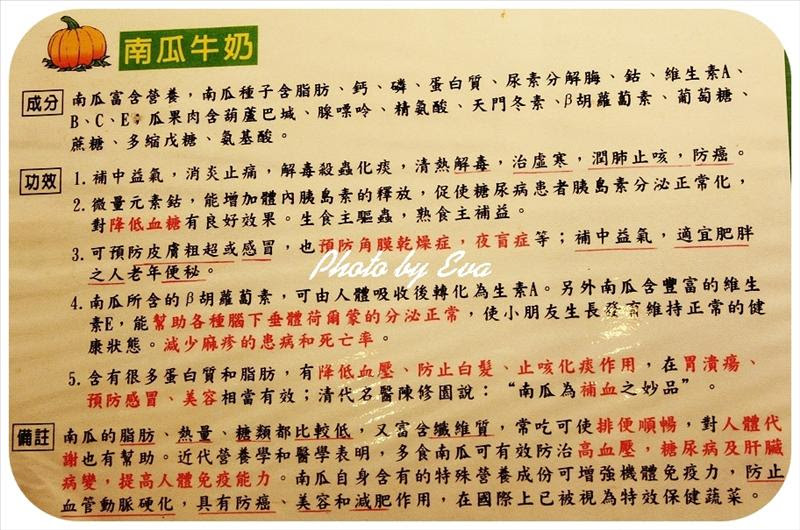 南瓜牛奶
成分 南瓜富含營養，南瓜種子含脂肪、鈣、磷、蛋白質、尿素分解脢、鈷、維生素A、
B、C、E；瓜果肉含葫蘆巴城、腺嘌呤、精氨酸、天門冬素、β胡蘿蔔素、葡萄糖、
蔗糖、多縮戊糖、氨基酸。
功效 1. 補中益氣，消炎止痛，解毒殺蟲化痰，清熱解毒，治虛寒，潤肺止咳，防癌。
2. 微量元素鈷，能增加體內胰島素的釋放，促使糖尿病患者胰島素分泌正常化，
對降低血糖有良好效果。生食主驅蟲，熟食主補益。
3. 可預防皮膚粗超或感冒，也預防角膜乾燥症，夜盲症等；補中益氣，適宜肥胖
之人老年便秘。
Photo by Eva
4. 南瓜所含的β胡蘿蔔素，可由人體吸收後轉化為生素A。另外南瓜含豐富的維生
素E，能幫助各種腦下垂體荷爾蒙的分泌正常，使小朋友生長發育維持正常的健
康狀態。減少麻疹的患病和死亡率。
5. 含有很多蛋白質和脂肪，有降低血壓、防止白髮、止咳化痰作用，在胃潰瘍、
預防感冒、美容相當有效；清代名醫陳修園說：“南瓜為補血之妙品”。
備註 南瓜的脂肪、熱量、糖類都比較低，又富含纖維質，常吃可使排便順暢，對人體代
謝也有幫助。近代營養學和醫學表明，多食南瓜可有效防治高血壓，糖尿病及肝臟
病變，提高人體免疫能力。南瓜自身含有的特殊營養成份可增強機體免疫力，防止
血管動脈硬化，具有防癌、美容和減肥作用，在國際上已被視為特效保健蔬菜。